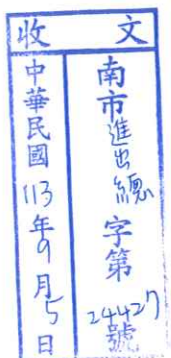 收文
南市進出總字第24427號
中華民國113年9月5日